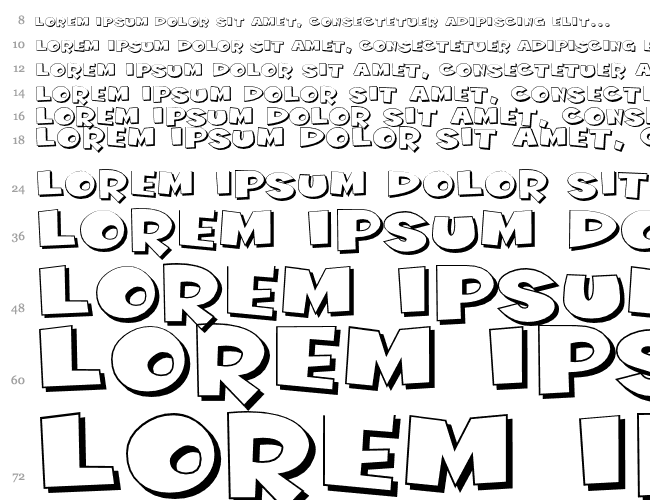 8 LOREM IPSUM DOLOR SIT AMET, CONSECTETUER ADIPISCING ELIT...
10 LOREM IPSUM DOLOR SIT AMET, CONSECTETUER ADIPISCING E
12 LOREM IPSUM DOLOR SIT AMET, CONSECTETUER A
14 LOREM IPSUM DOLOR SIT AMET, CONSECT
16 LOREM IPSUM DOLOR SIT AMET, CONSE
18 LOREM IPSUM DOLOR SIT AMET, C
24 LOREM IPSUM DOLOR SIT
36 LOREM IPSUM DO
48 LOREM IPSU
60 LOREM IPS
72 LOREM I